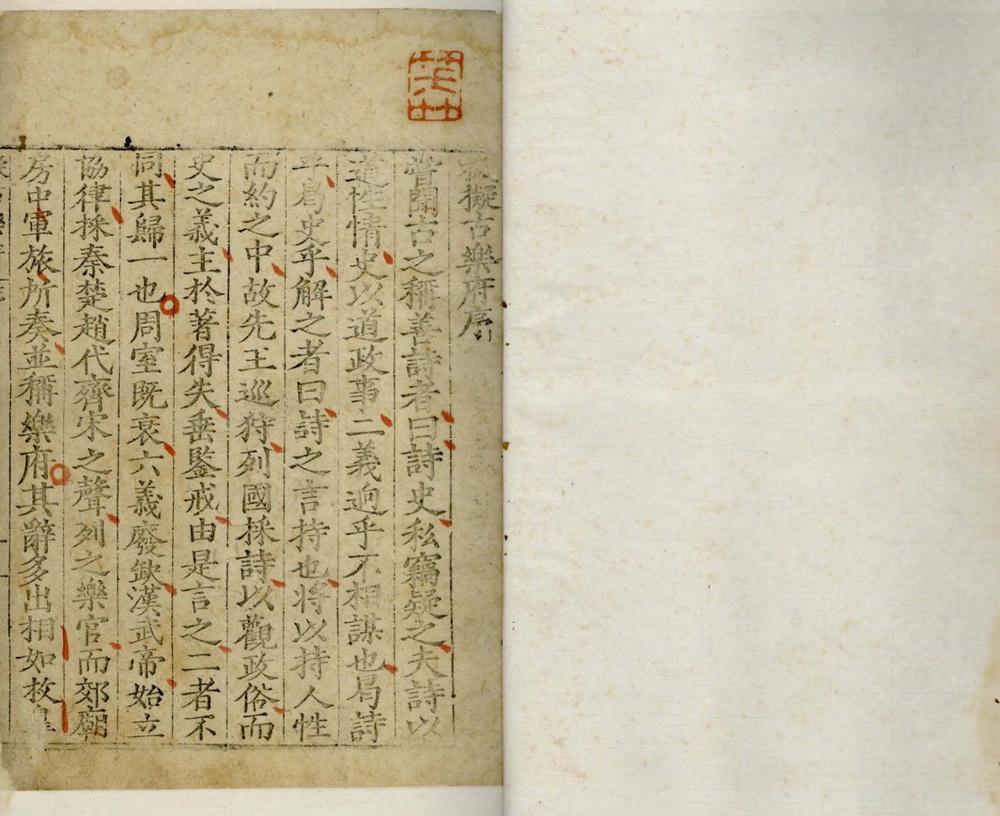 擬古樂府序
嘗聞古之稱善詩者曰詩史私竊疑之夫詩以
道性情史以道政事二義逈乎不相謀也曷詩
乎曷史乎解之者曰詩之言持也將以持人性
而約之中故先王巡狩列國採詩以觀政俗而
史之義主於著得失垂鑒戒由是言之二者不
同其歸一也周室既衰六義廢缺漢武帝始立
協律採秦楚趙代齊宋之聲列之樂官而郊廟
房中軍旅所奏並稱樂府其辭多出相如枚皋